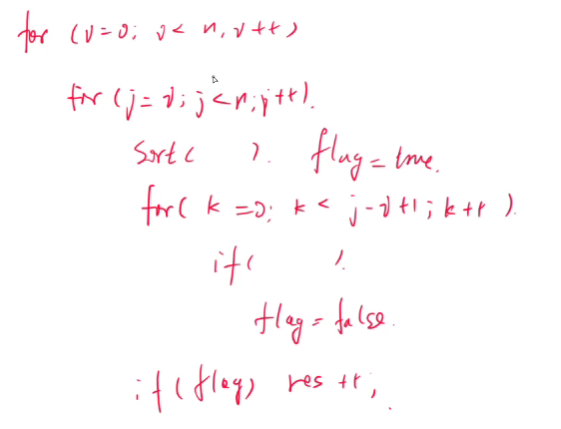 for (i=0; i< n, i++)
for (j=i; j<n; j++).
Sort( ). flag = true.
for( k =0; k < j-i+1; k++ ).
if( ).
flag = false.
if (flag) res ++;